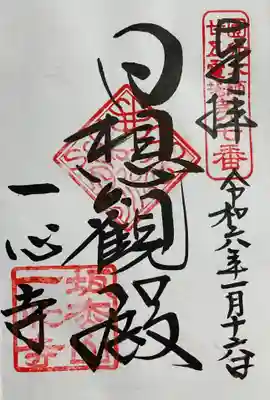 奉拝
令和六年一月十六日
日想観殿
一心寺